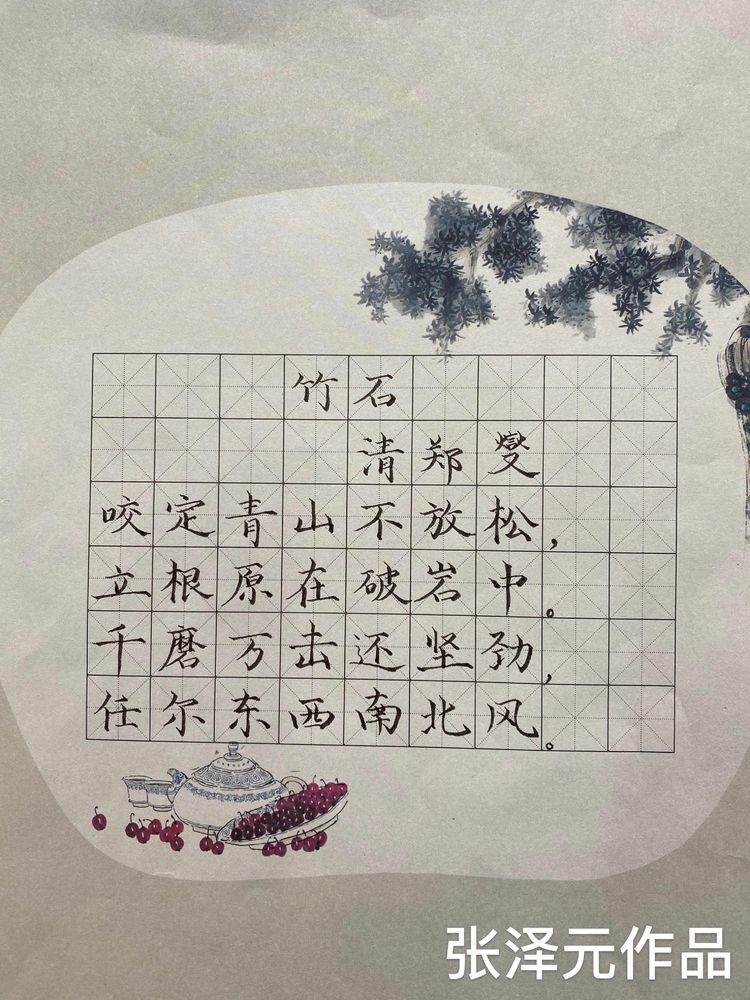 竹石
清郑燮
咬定青山不放松，
立根原在破岩中。
千磨万击还坚劲，
任尔东西南北风。
张泽元作品